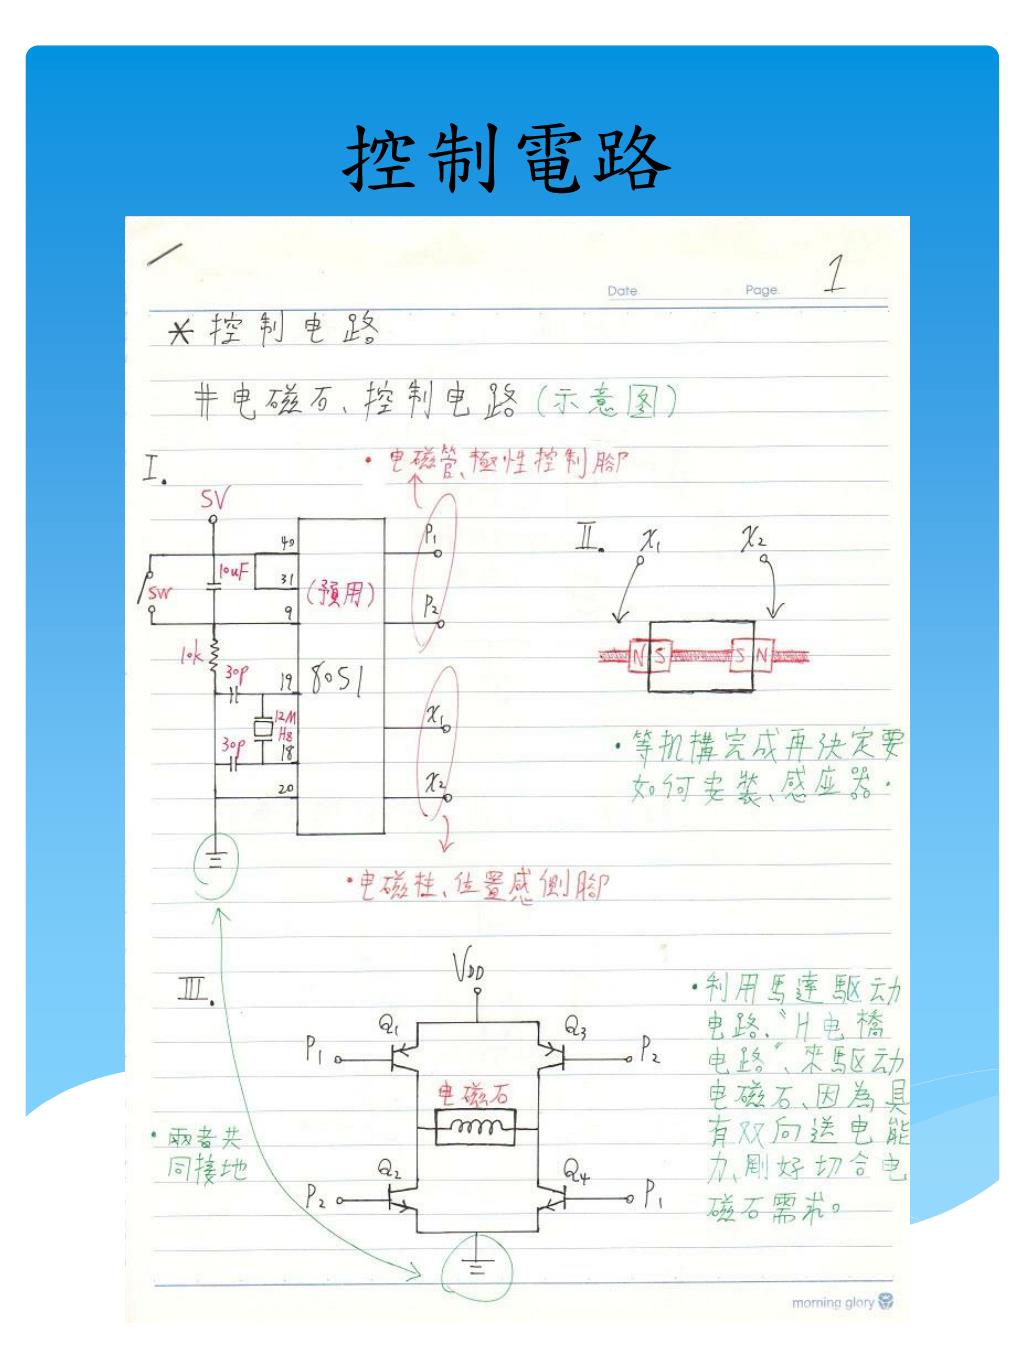 控制電路
1
Date
Page.
*控制电路
#电磁石、控制电路(示意图)
I.
•电磁管、極性控制腳
5V
40
10uF
31
SW
9
(預用)
P1
P2
10k
30p
19
8051
12M
Hz
30p
18
20
X1
X2
•电磁柱、位置感側腳
II.
X1
X2
N S
S N
•等机構完成再決定要
如何安裝、感应器.
III.
VDD
Q1
Q3
P1
P2
电磁石
Q2
Q4
P2
P1
•兩者共
同接地
•利用馬達驅动
电路、"H电橋
电路"、來驅动
电磁石、因為具
有双向送电能
力、剛好切合电
磁石需求。
morning glory